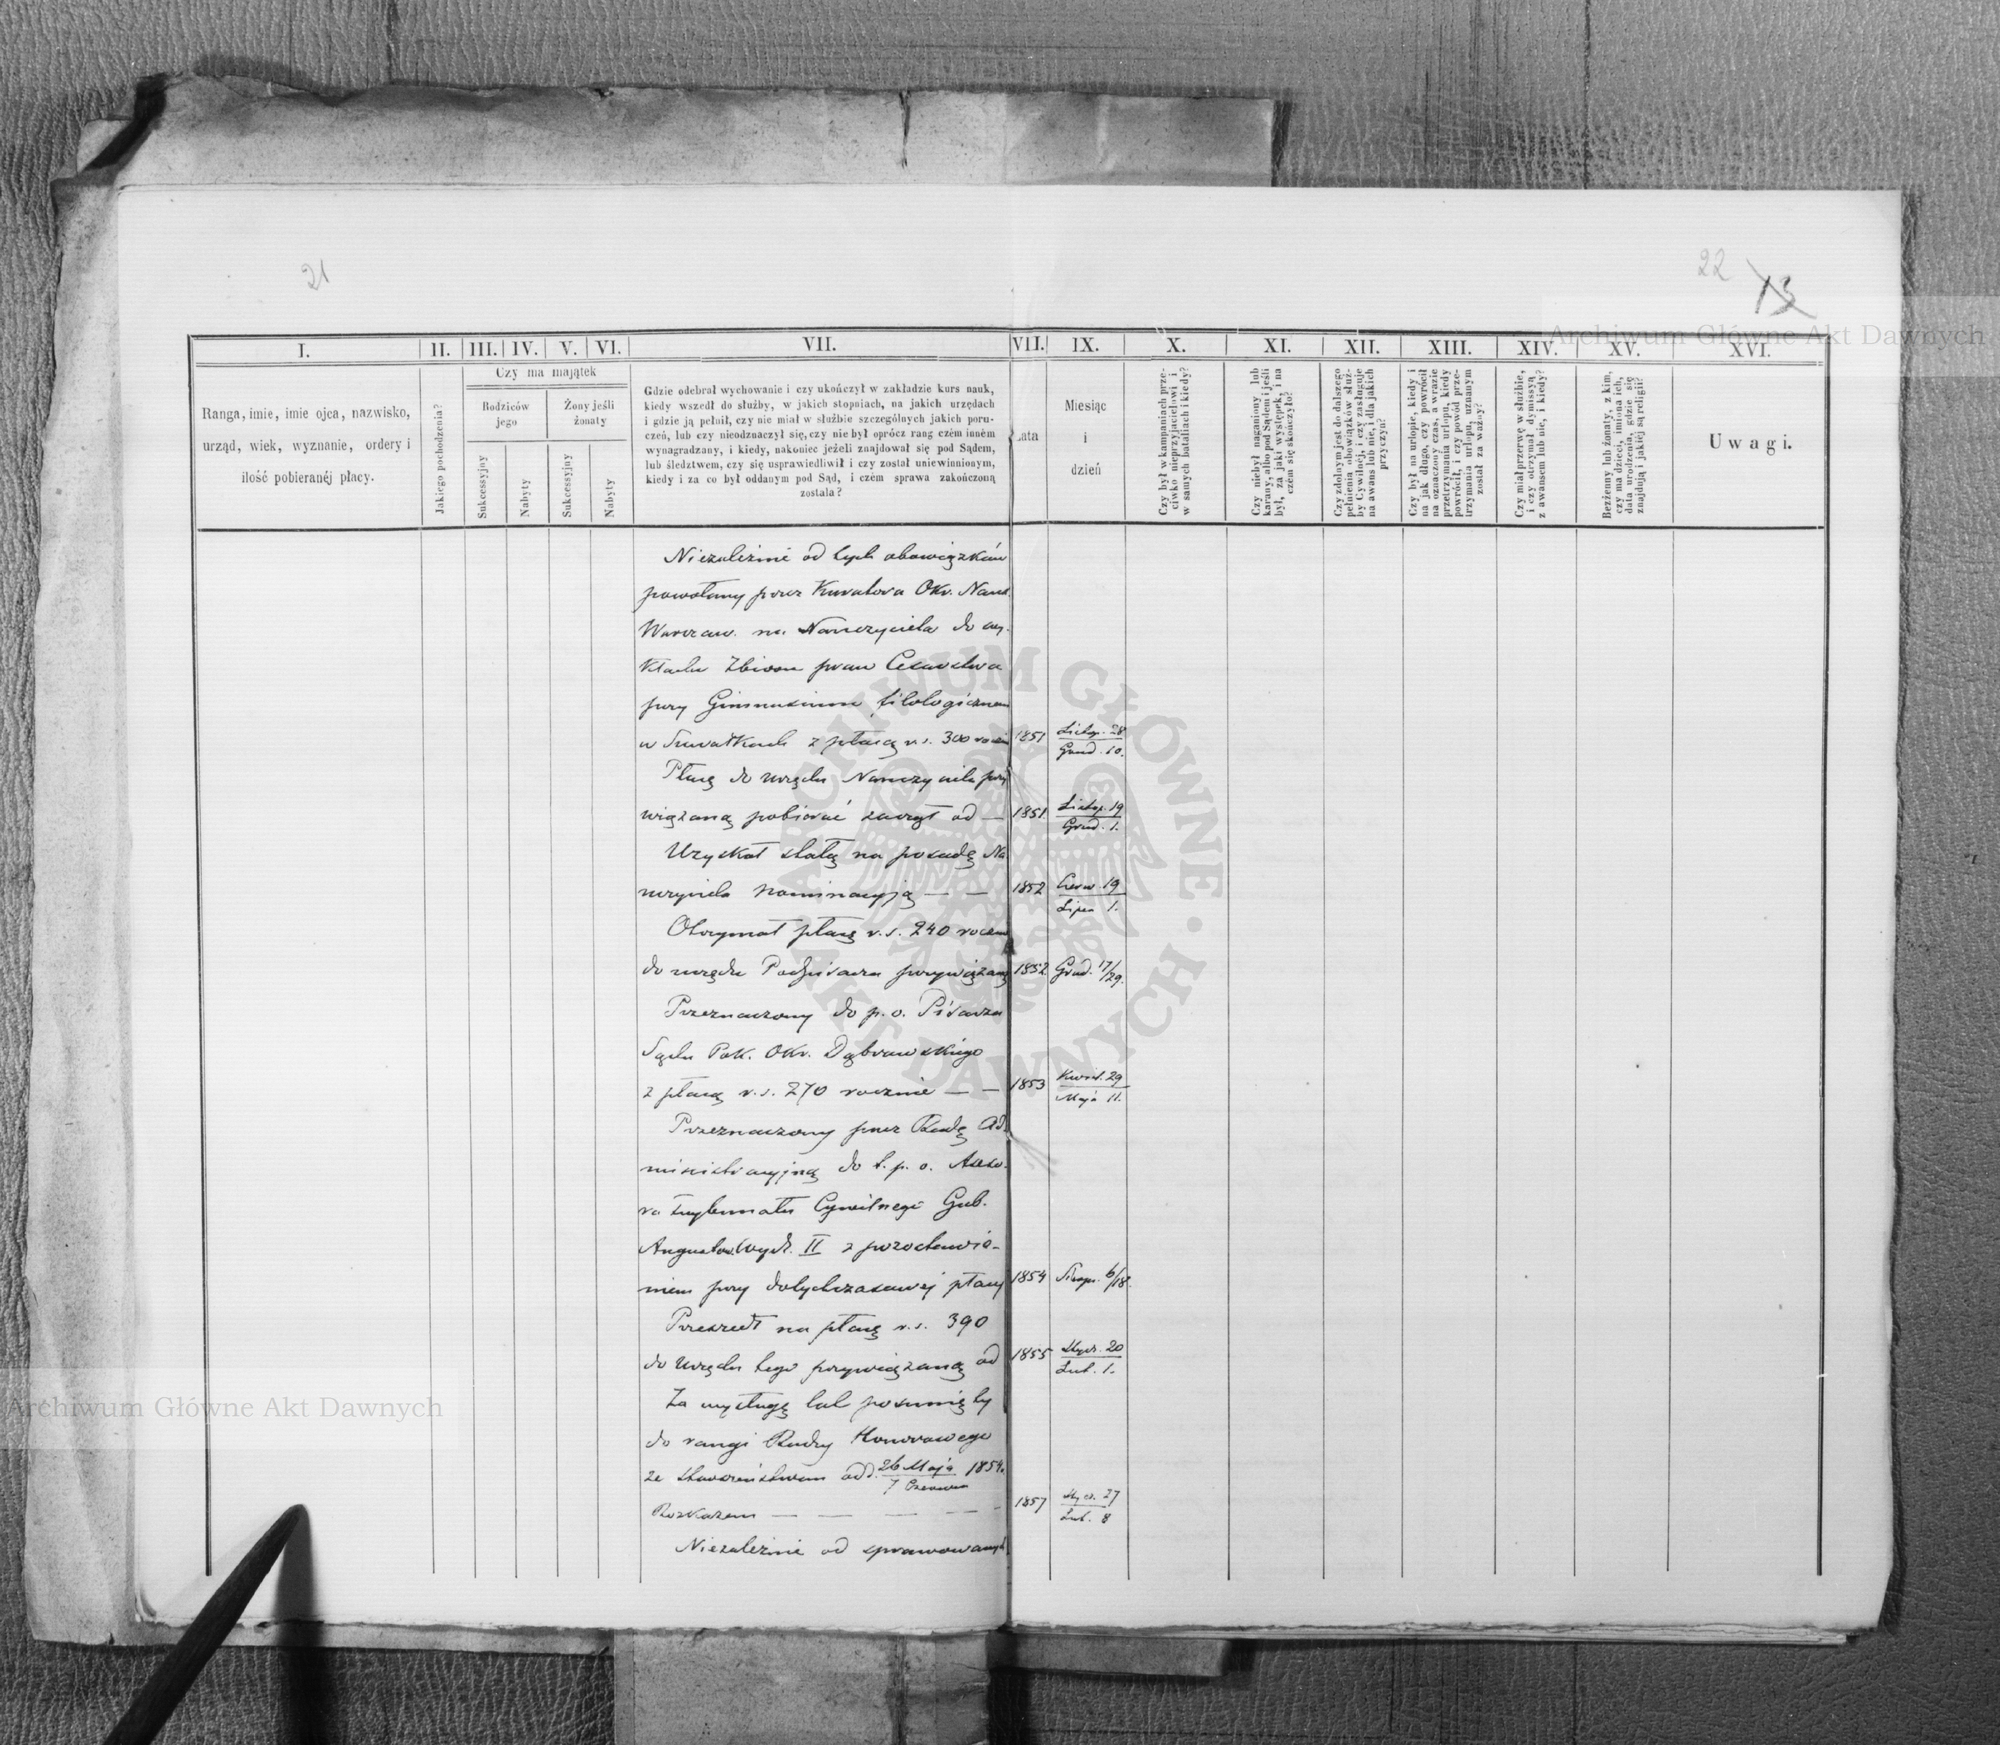 21
22
13
I.
II.
III.
IV.
V.
VI.
VII.
VII.
IX.
X.
XI.
XII.
XIII.
XIV.
XV.
XVI.
Ranga, imie, imie ojca, nazwisko,
urząd, wiek, wyznanie, ordery i
ilość pobieranéj płacy.
Jakiego pochodzenia?
Czy ma majątek
Rodziców
jego
Żony jeśli
żonaty
Sukcessyjny
Nabyty
Sukcessyjny
Nabyty
Gdzie odebrał wychowanie i czy ukończył w zakładzie kurs nauk,
kiedy wszedł do służby, w jakich stopniach, na jakich urzędach
i gdzie ją pełnił, czy nie miał w służbie szczególnych jakich poru-
czeń, lub czy nieodznaczył się, czy nie był oprócz rang czém inném
wynagradzany, i kiedy, nakoniec jeżeli znajdował się pod Sądem,
lub śledztwem, czy się usprawiedliwił i czy został uniewinnionym,
kiedy i za co był oddanym pod Sąd, i czém sprawa zakończoną
została?
Lata
Miesiąc
i
dzień
Czy był w kampaniach prze-
ciwko nieprzyjacielowi i
w samych bataliach i kiedy?
Czy niebył naganiony lub
karany, albo pod Sądem i jeśli
był, za jaki występek, i na
czém się skończyło?
Czy zdolnym jest do dalszego
pełnienia obowiązków w służ-
by Cywilnej, i czy zasługuje
na awans lub nie, i dla jakich
przyczyn?
Czy był na urlopie, kiedy i
na jak długo, czy powrócił
na oznaczony czas, a w razie
przetrzymania urlopu, kiedy
powrócił, i czy powód prze-
trzymania urlopu, uznanym
został za ważny?
Czy miał przerwę w służbie,
i czy otrzymał dymissyą
z awansem lub nie, i kiedy?
Bezżenny lub żonaty, z kim,
czy ma dzieci, imiona ich,
data urodzenia, gdzie się
znajdują i jakiéj są religii?
Uwagi.
Niezależnie od tych obowiązków
powołany przez Kuratora Okr. Nauk.
Warszaw. na Nauczyciela do wy-
kładu Zbioru praw Cesarstwa
przy Gimnazium filologicznem
w Suwałkach z płacą r.s. 300 rocznie 1851 Listop. 28
Grud. 10.
Płacę do urzędu Nauczyciela przy
wiązaną pobierać zaczął od — 1851 Listop. 19
Grud. 1.
Uzyskał stałą na posadę Na-
uczyciela nominacyją — — 1852 Czerw. 19
Lipca 1.
Otrzymał płacę r.s. 240 rocznie
do urzędu Podpisarza przywiązaną 1852 Grud. 17/29.
Przeznaczony do p. o. Pisarza
Sądu Pok. Okr. Dąbrowskiego
z płacą r.s. 270 rocznie — — 1853 Kwiet. 29
Maja 11.
Przeznaczony przez Radę Ad-
ministracyjną do t. p. o. Asesso-
ra Trybunału Cywilnego Gub.
Augustow. Wydz. II z pozostawie-
niem przy dotychczasowej płacy 1854 Sierpn. 6/18.
Przeszedł na płacę r.s. 390
do urzędu tego przywiązaną od 1855 Stycz. 20
Lut. 1.
Za wysługę lat posunięty
do rangi Radcy Honorowego
ze starszeństwem od d. 26 Maja 1854.
7 Czerwca
Rozkazem — — — — — 1857 Stycz. 27
Lut. 8
Niezależnie od sprawowanych
Archiwum Główne Akt Dawnych
Archiwum Główne Akt Dawnych
ARCHIWUM GŁÓWNE
AKT DAWNYCH